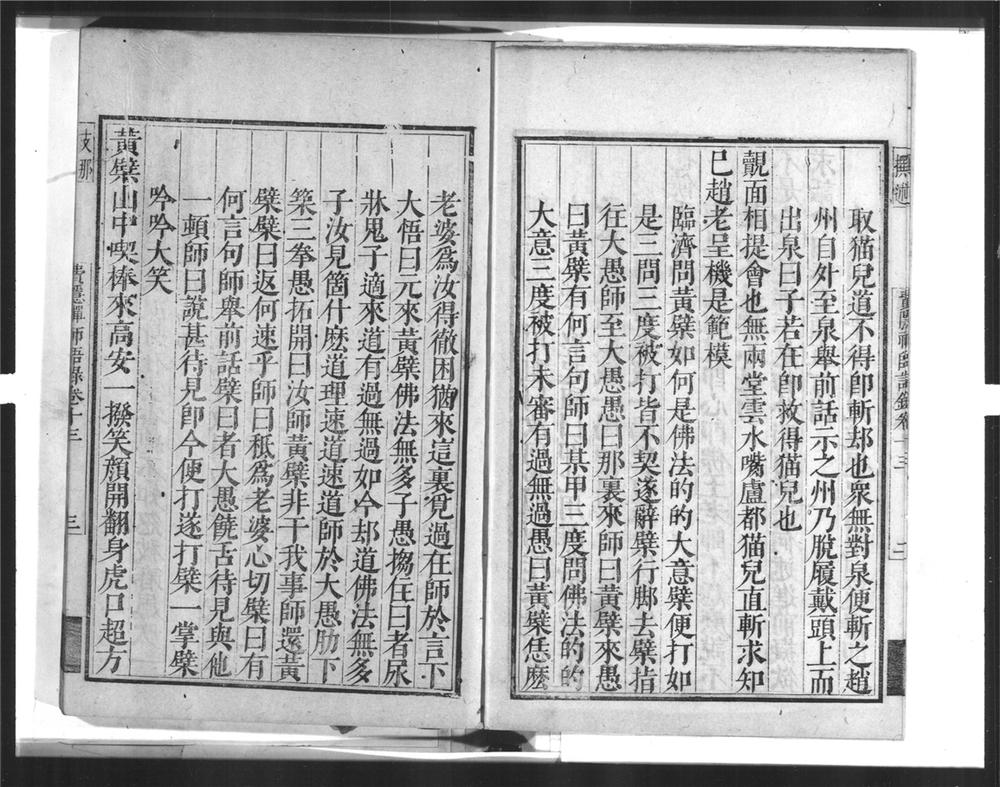 取猫兒道不得卽斬却也衆無對泉便斬之趙
州自外至泉舉前話示之州乃脫履戴頭上而
出泉曰子若在卽救得猫兒也
覿面相提會也無兩堂雲水嘴盧都猫兒直斬求知
已趙老呈機是範模
臨濟問黃檗如何是佛法的的大意檗便打如
是三問三度被打皆不契遂辭檗行脚去檗指
往大愚師至大愚愚曰那裏來師曰黃檗來愚
曰黃檗有何言句師曰某甲三度問佛法的的
大意三度被打未審有過無過愚曰黃檗恁麽
老婆爲汝得徹困猶來這裏覓過在師於言下
大悟曰元來黃檗佛法無多子愚搊住曰者尿
牀鬼子適來道有過無過如今却道佛法無多
子汝見箇什麽道理速道速道師於大愚肋下
築三拳愚拓開曰汝師黃檗非干我事師還黃
檗檗曰返何速乎師曰秪爲老婆心切檗曰有
何言句師舉前話檗曰者大愚饒舌待見與他
一頓師曰說甚待見卽今便打遂打檗一掌檗
吟吟大笑
黃檗山中喫棒來高安一撥笑顏開翻身虎口超方
支那
費隱禪師語錄卷十三
三